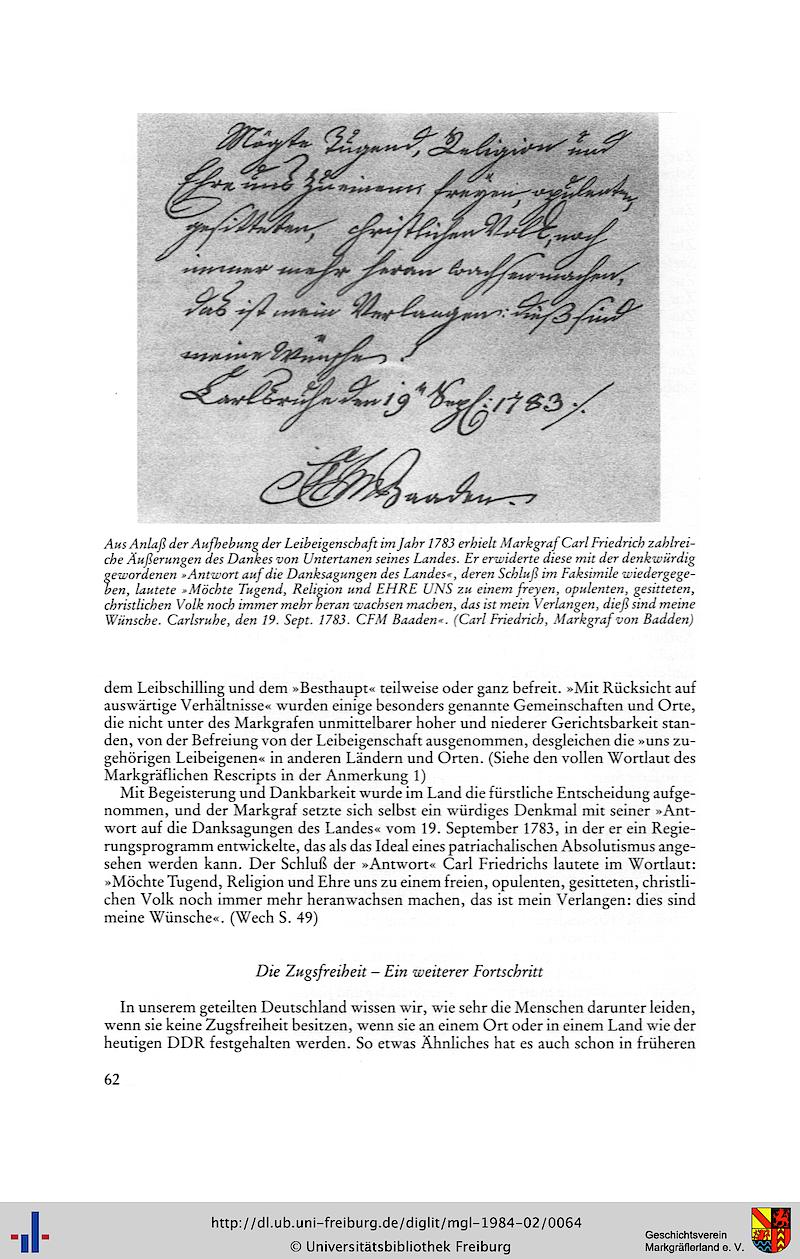 Mögte Tugend, Religion und
Ehre uns zu einem freyen, opulenten,
gesitteten, christlichen Volk, noch
immer mehr heran wachsen machen,
das ist mein Verlangen: dieß sind
meine Wünsche!
Carlsruhe den 19ⁿ Sept: 1783 ./.
CFM Baaden.
Aus Anlaß der Aufhebung der Leibeigenschaft im Jahr 1783 erhielt Markgraf Carl Friedrich zahlrei-
che Äußerungen des Dankes von Untertanen seines Landes. Er erwiderte diese mit der denkwürdig
gewordenen »Antwort auf die Danksagungen des Landes«, deren Schluß im Faksimile wiedergege-
ben, lautete »Möchte Tugend, Religion und EHRE UNS zu einem freyen, opulenten, gesitteten,
christlichen Volk noch immer mehr heran wachsen machen, das ist mein Verlangen, dieß sind meine
Wünsche. Carlsruhe, den 19. Sept. 1783. CFM Baaden«. (Carl Friedrich, Markgraf von Badden)
dem Leibschilling und dem »Besthaupt« teilweise oder ganz befreit. »Mit Rücksicht auf
auswärtige Verhältnisse« wurden einige besonders genannte Gemeinschaften und Orte,
die nicht unter des Markgrafen unmittelbarer hoher und niederer Gerichtsbarkeit stan-
den, von der Befreiung von der Leibeigenschaft ausgenommen, desgleichen die »uns zu-
gehörigen Leibeigenen« in anderen Ländern und Orten. (Siehe den vollen Wortlaut des
Markgräflichen Rescripts in der Anmerkung 1)
Mit Begeisterung und Dankbarkeit wurde im Land die fürstliche Entscheidung aufge-
nommen, und der Markgraf setzte sich selbst ein würdiges Denkmal mit seiner »Ant-
wort auf die Danksagungen des Landes« vom 19. September 1783, in der er ein Regie-
rungsprogramm entwickelte, das als das Ideal eines patriachalischen Absolutismus ange-
sehen werden kann. Der Schluß der »Antwort« Carl Friedrichs lautete im Wortlaut:
»Möchte Tugend, Religion und Ehre uns zu einem freien, opulenten, gesitteten, christli-
chen Volk noch immer mehr heranwachsen machen, das ist mein Verlangen: dies sind
meine Wünsche«. (Wech S. 49)
Die Zugsfreiheit – Ein weiterer Fortschritt
In unserem geteilten Deutschland wissen wir, wie sehr die Menschen darunter leiden,
wenn sie keine Zugsfreiheit besitzen, wenn sie an einem Ort oder in einem Land wie der
heutigen DDR festgehalten werden. So etwas Ähnliches hat es auch schon in früheren
62
http://dl.ub.uni-freiburg.de/diglit/mgl-1984-02/0064
© Universitätsbibliothek Freiburg
Geschichtsverein
Markgräflerland e. V.